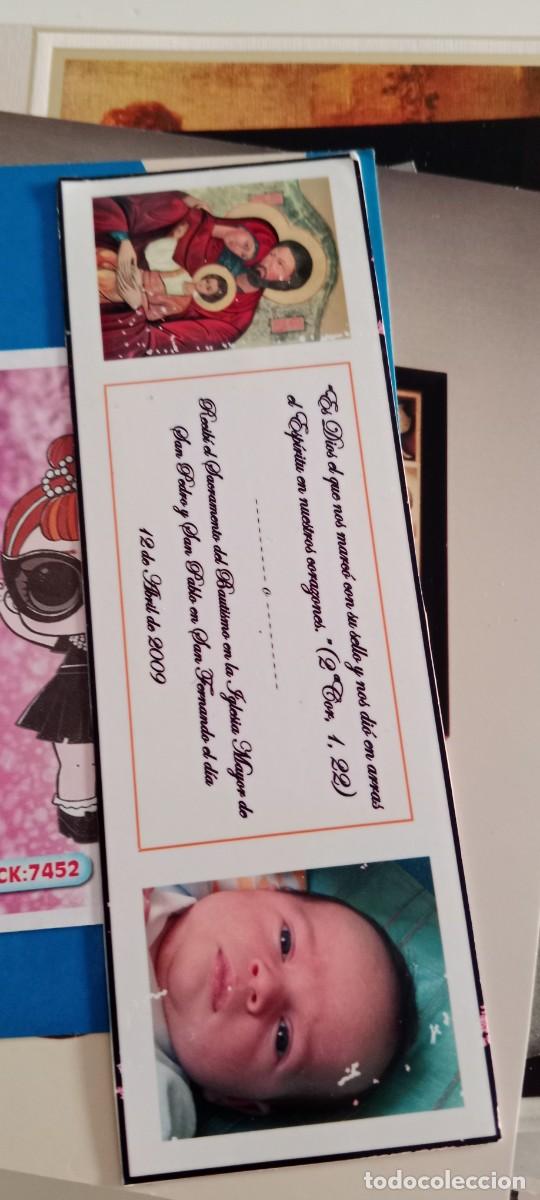 "Es Dios el que nos marcó con su sello y nos dió en arras
el Espíritu en nuestros corazones. "(2ª Cor, 1, 22)
--------o--------
Recibí el Sacramento del Bautismo en la Iglesia Mayor de
San Pedro y San Pablo en San Fernando el día
12 de Abril de 2009
CK:7452
todocoleccion